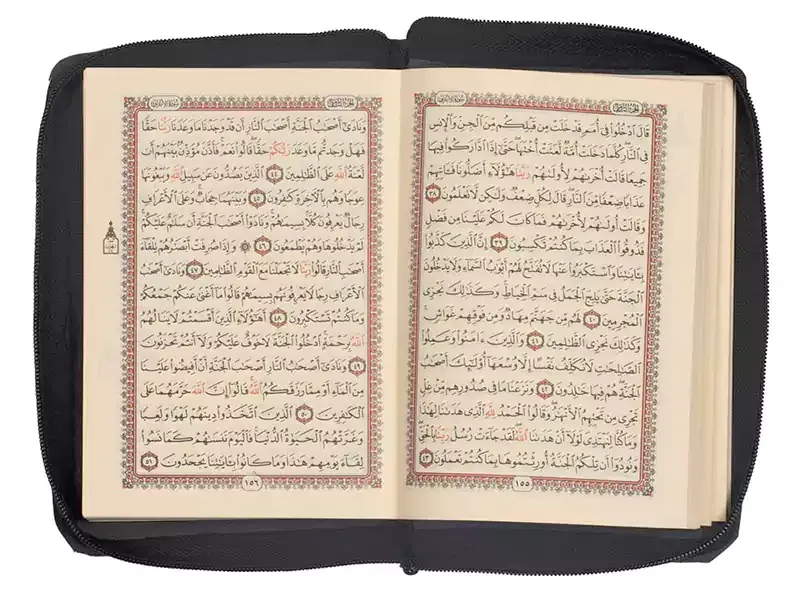 الجزء الثامن
سورة الأعراف
قَالَ ٱدْخُلُوا۟ فِىٓ أُمَمٍ قَدْ خَلَتْ مِن قَبْلِكُم مِّنَ ٱلْجِنِّ وَٱلْإِنسِ
فِى ٱلنَّارِ كُلَّمَا دَخَلَتْ أُمَّةٌ لَّعَنَتْ أُخْتَهَا حَتَّىٰٓ إِذَا ٱدَّارَكُوا۟ فِيهَا
جَمِيعًا قَالَتْ أُخْرَىٰهُمْ لِأُولَىٰهُمْ رَبَّنَا هَٰٓؤُلَآءِ أَضَلُّونَا فَـَٔاتِهِمْ
عَذَابًا ضِعْفًا مِّنَ ٱلنَّارِ قَالَ لِكُلٍّ ضِعْفٌ وَلَٰكِن لَّا تَعْلَمُونَ ٣٨
وَقَالَتْ أُولَىٰهُمْ لِأُخْرَىٰهُمْ فَمَا كَانَ لَكُمْ عَلَيْنَا مِن فَضْلٍ
فَذُوقُوا۟ ٱلْعَذَابَ بِمَا كُنتُمْ تَكْسِبُونَ ٣٩ إِنَّ ٱلَّذِينَ كَذَّبُوا۟
بِـَٔايَٰتِنَا وَٱسْتَكْبَرُوا۟ عَنْهَا لَا تُفَتَّحُ لَهُمْ أَبْوَٰبُ ٱلسَّمَآءِ وَلَا يَدْخُلُونَ
ٱلْجَنَّةَ حَتَّىٰ يَلِجَ ٱلْجَمَلُ فِى سَمِّ ٱلْخِيَاطِ وَكَذَٰلِكَ نَجْزِى
ٱلْمُجْرِمِينَ ٤٠ لَهُم مِّن جَهَنَّمَ مِهَادٌ وَمِن فَوْقِهِمْ غَوَاشٍ
وَكَذَٰلِكَ نَجْزِى ٱلظَّٰلِمِينَ ٤١ وَٱلَّذِينَ ءَامَنُوا۟ وَعَمِلُوا۟
ٱلصَّٰلِحَٰتِ لَا نُكَلِّفُ نَفْسًا إِلَّا وُسْعَهَآ أُو۟لَٰٓئِكَ أَصْحَٰبُ
ٱلْجَنَّةِ هُمْ فِيهَا خَٰلِدُونَ ٤٢ وَنَزَعْنَا مَا فِى صُدُورِهِم مِّنْ غِلٍّ
تَجْرِى مِن تَحْتِهِمُ ٱلْأَنْهَٰرُ وَقَالُوا۟ ٱلْحَمْدُ لِلَّهِ ٱلَّذِى هَدَىٰنَا لِهَٰذَا
وَمَا كُنَّا لِنَهْتَدِىَ لَوْلَآ أَنْ هَدَىٰنَا ٱللَّهُ لَقَدْ جَآءَتْ رُسُلُ رَبِّنَا بِٱلْحَقِّ
وَنُودُوٓا۟ أَن تِلْكُمُ ٱلْجَنَّةُ أُورِثْتُمُوهَا بِمَا كُنتُمْ تَعْمَلُونَ ٤٣
١٥٥
الجزء الثامن
سورة الأعراف
وَنَادَىٰٓ أَصْحَٰبُ ٱلْجَنَّةِ أَصْحَٰبَ ٱلنَّارِ أَن قَدْ وَجَدْنَا مَا وَعَدَنَا رَبُّنَا حَقًّا
فَهَلْ وَجَدتُّم مَّا وَعَدَ رَبُّكُمْ حَقًّا قَالُوا۟ نَعَمْ فَأَذَّنَ مُؤَذِّنٌۢ بَيْنَهُمْ أَن
لَّعْنَةُ ٱللَّهِ عَلَى ٱلظَّٰلِمِينَ ٤٤ ٱلَّذِينَ يَصُدُّونَ عَن سَبِيلِ ٱللَّهِ وَيَبْغُونَهَا
عِوَجًا وَهُم بِٱلْـَٔاخِرَةِ كَٰفِرُونَ ٤٥ وَبَيْنَهُمَا حِجَابٌ وَعَلَى ٱلْأَعْرَافِ
رِجَالٌ يَعْرِفُونَ كُلًّۢا بِسِيمَىٰهُمْ وَنَادَوْا۟ أَصْحَٰبَ ٱلْجَنَّةِ أَن سَلَٰمٌ عَلَيْكُمْ
لَمْ يَدْخُلُوهَا وَهُمْ يَطْمَعُونَ ٤٦ ۞ وَإِذَا صُرِفَتْ أَبْصَٰرُهُمْ تِلْقَآءَ
أَصْحَٰبِ ٱلنَّارِ قَالُوا۟ رَبَّنَا لَا تَجْعَلْنَا مَعَ ٱلْقَوْمِ ٱلظَّٰلِمِينَ ٤٧ وَنَادَىٰٓ أَصْحَٰبُ
ٱلْأَعْرَافِ رِجَالًا يَعْرِفُونَهُم بِسِيمَىٰهُمْ قَالُوا۟ مَآ أَغْنَىٰ عَنكُمْ جَمْعُكُمْ
وَمَا كُنتُمْ تَسْتَكْبِرُونَ ٤٨ أَهَٰٓؤُلَآءِ ٱلَّذِينَ أَقْسَمْتُمْ لَا يَنَالُهُمُ
ٱللَّهُ بِرَحْمَةٍ ٱدْخُلُوا۟ ٱلْجَنَّةَ لَا خَوْفٌ عَلَيْكُمْ وَلَآ أَنتُمْ تَحْزَنُونَ
٤٩ وَنَادَىٰٓ أَصْحَٰبُ ٱلنَّارِ أَصْحَٰبَ ٱلْجَنَّةِ أَنْ أَفِيضُوا۟ عَلَيْنَا
مِنَ ٱلْمَآءِ أَوْ مِمَّا رَزَقَكُمُ ٱللَّهُ قَالُوٓا۟ إِنَّ ٱللَّهَ حَرَّمَهُمَا عَلَى
ٱلْكَٰفِرِينَ ٥٠ ٱلَّذِينَ ٱتَّخَذُوا۟ دِينَهُمْ لَهْوًا وَلَعِبًا
وَغَرَّتْهُمُ ٱلْحَيَوٰةُ ٱلدُّنْيَا فَٱلْيَوْمَ نَنسَىٰهُمْ كَمَا نَسُوا۟
لِقَآءَ يَوْمِهِمْ هَٰذَا وَمَا كَانُوا۟ بِـَٔايَٰتِنَا يَجْحَدُونَ ٥١
١٥٦